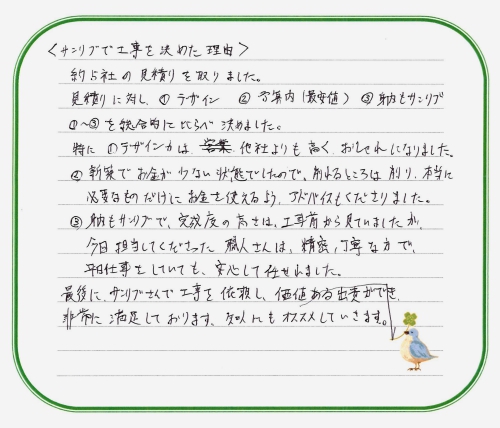 〈サンリブで工事を決めた理由〉
約5社の見積りを取りました。
見積りに対し、①デザイン ②予算内(最安値) ③身内もサンリブ
①～③を総合的に比らべ決めました。
特に①デザイン力は、他社よりも高く、おしゃれになりました。
②新築でお金が少ない状態でしたので、削れるところは削り、本当に
必要なものだけにお金を使えるよう、アドバイスもくださりました。
③身内もサンリブで、完成度の高さは、工事前から見ていましたが、
今日担当してくださった職人さんは、精密、丁寧な方で、
平日仕事をしていても、安心して任せれました。
最後に、サンリブさんで工事を依頼し、価値ある出費ができ、
非常に満足しております。知人にもオススメしていきます。